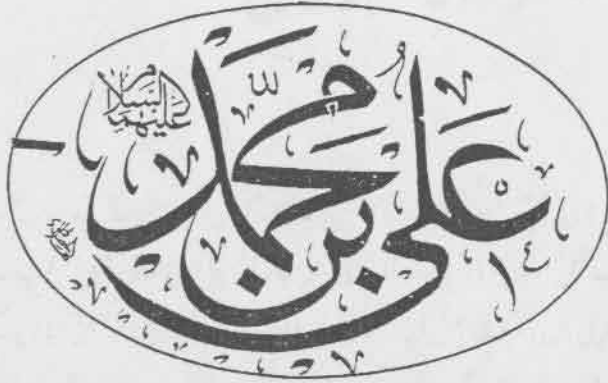 علي بن محمد
عليهم السلام